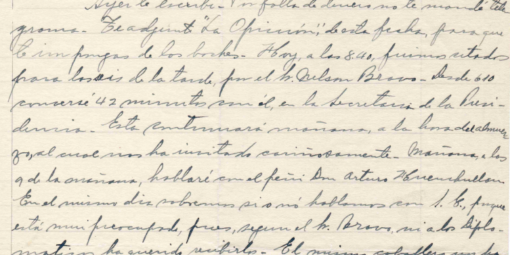 Ayer te escribí. Por falta de dinero no te mandé tele
grama. Te adjunto "La Opinión", de esta fecha, para que
te impongas de los boches. Hoy, a las 8.40, fuimos citados
para las seis de la tarde, por el h. Nelson Bravo. Desde 6.10
conversé 42 minutos con él, en la Secretaría de la Presi-
dencia. Esta continuará mañana, a la hora del almuer
zo, al cual nos ha invitado cariñosamente. Mañana, a las
9 de la mañana, hablaré con el peñi Don Arturo Huenchullan.
En el mismo día sabremos si o nó hablamos con S. E., porque
está muy preocupado, pues, según el h. Bravo, ni a los diplo-
máticos ha querido recibirlos. El mismo caballero